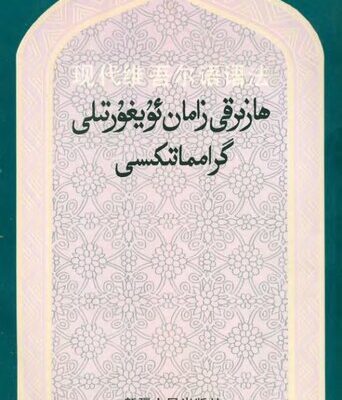 现代维吾尔语语法
ھازىرقى زامان ئۇيغۇر تىلى
گرامماتىكىسى
新疆人民出版社